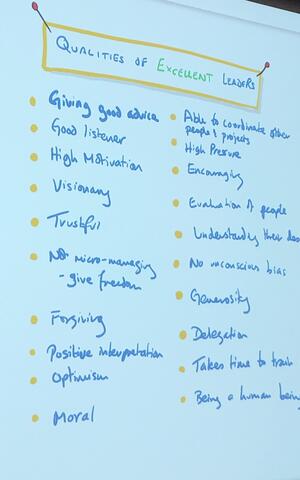 QUALITIES OF EXCELLENT LEADERS
Giving good advice
Good listener
High Motivation
Visionary
Trustful
Not micro-managing
- give freedom
Forgiving
Positive interpretation
Optimism
Moral
Able to coordinate other
people & projects
High Pressure
Encouraging
Evaluation of people
Understanding their
No unconscious bias
Generosity
Delegation
Takes time to train
Being a human being